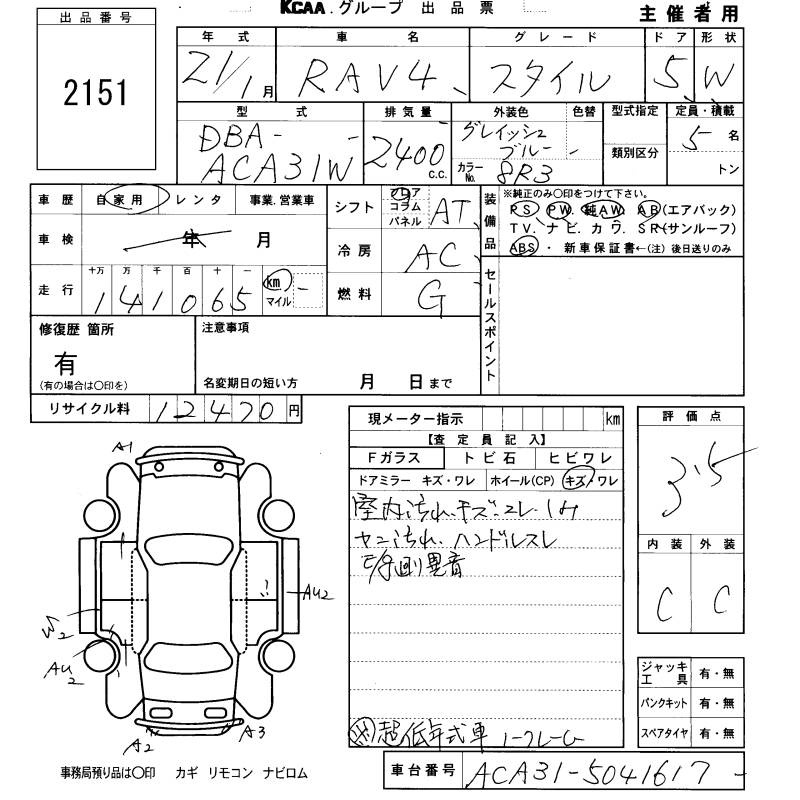 KCAA.グループ 出品票
主催者用
出品番号
2151
年式 車名 グレード ドア 形状
21/1月 RAV4 スタイル 5 W
型式 排気量 外装色 色替 型式指定 定員・積載
DBA-
ACA31W
2400 c.c.
グレイッシュ
ブルー
カラーNo. 8R3
類別区分
5名
トン
車歴 自家用 レンタ 事業.営業車
車検 年 月
走行 十万 万 千 百 十 一
141065 km
マイル
シフト フロア コラム パネル AT
冷房 AC
燃料 G
装備品
※純正のみ〇印をつけて下さい。
PS PW 純AW AB(エアバック)
TV. ナビ. カワ. SR(サンルーフ)
ABS・新車保証書←(注)後日送りのみ
セールスポイント
修復歴 箇所
有
(有の場合は〇印を)
注意事項
名変期日の短い方 月 日まで
リサイクル料 12470円
現メーター指示 km
【査定員記入】
Fガラス トビ石 ヒビワレ
ドアミラー キズ・ワレ ホイール(CP) キズ・ワレ
室内汚れ.キズ.コレ.1み
ヤニ汚れ. ハンドルスレ
異音
超低年式車 ノークレーム
評価点
3.5
内装 外装
C C
ジャッキ工具 有・無
パンクキット 有・無
スペアタイヤ 有・無
A1
W2
AU2
AU2
A2
A3
事務局預り品は〇印 カギ リモコン ナビロム
車台番号 ACA31-5041617